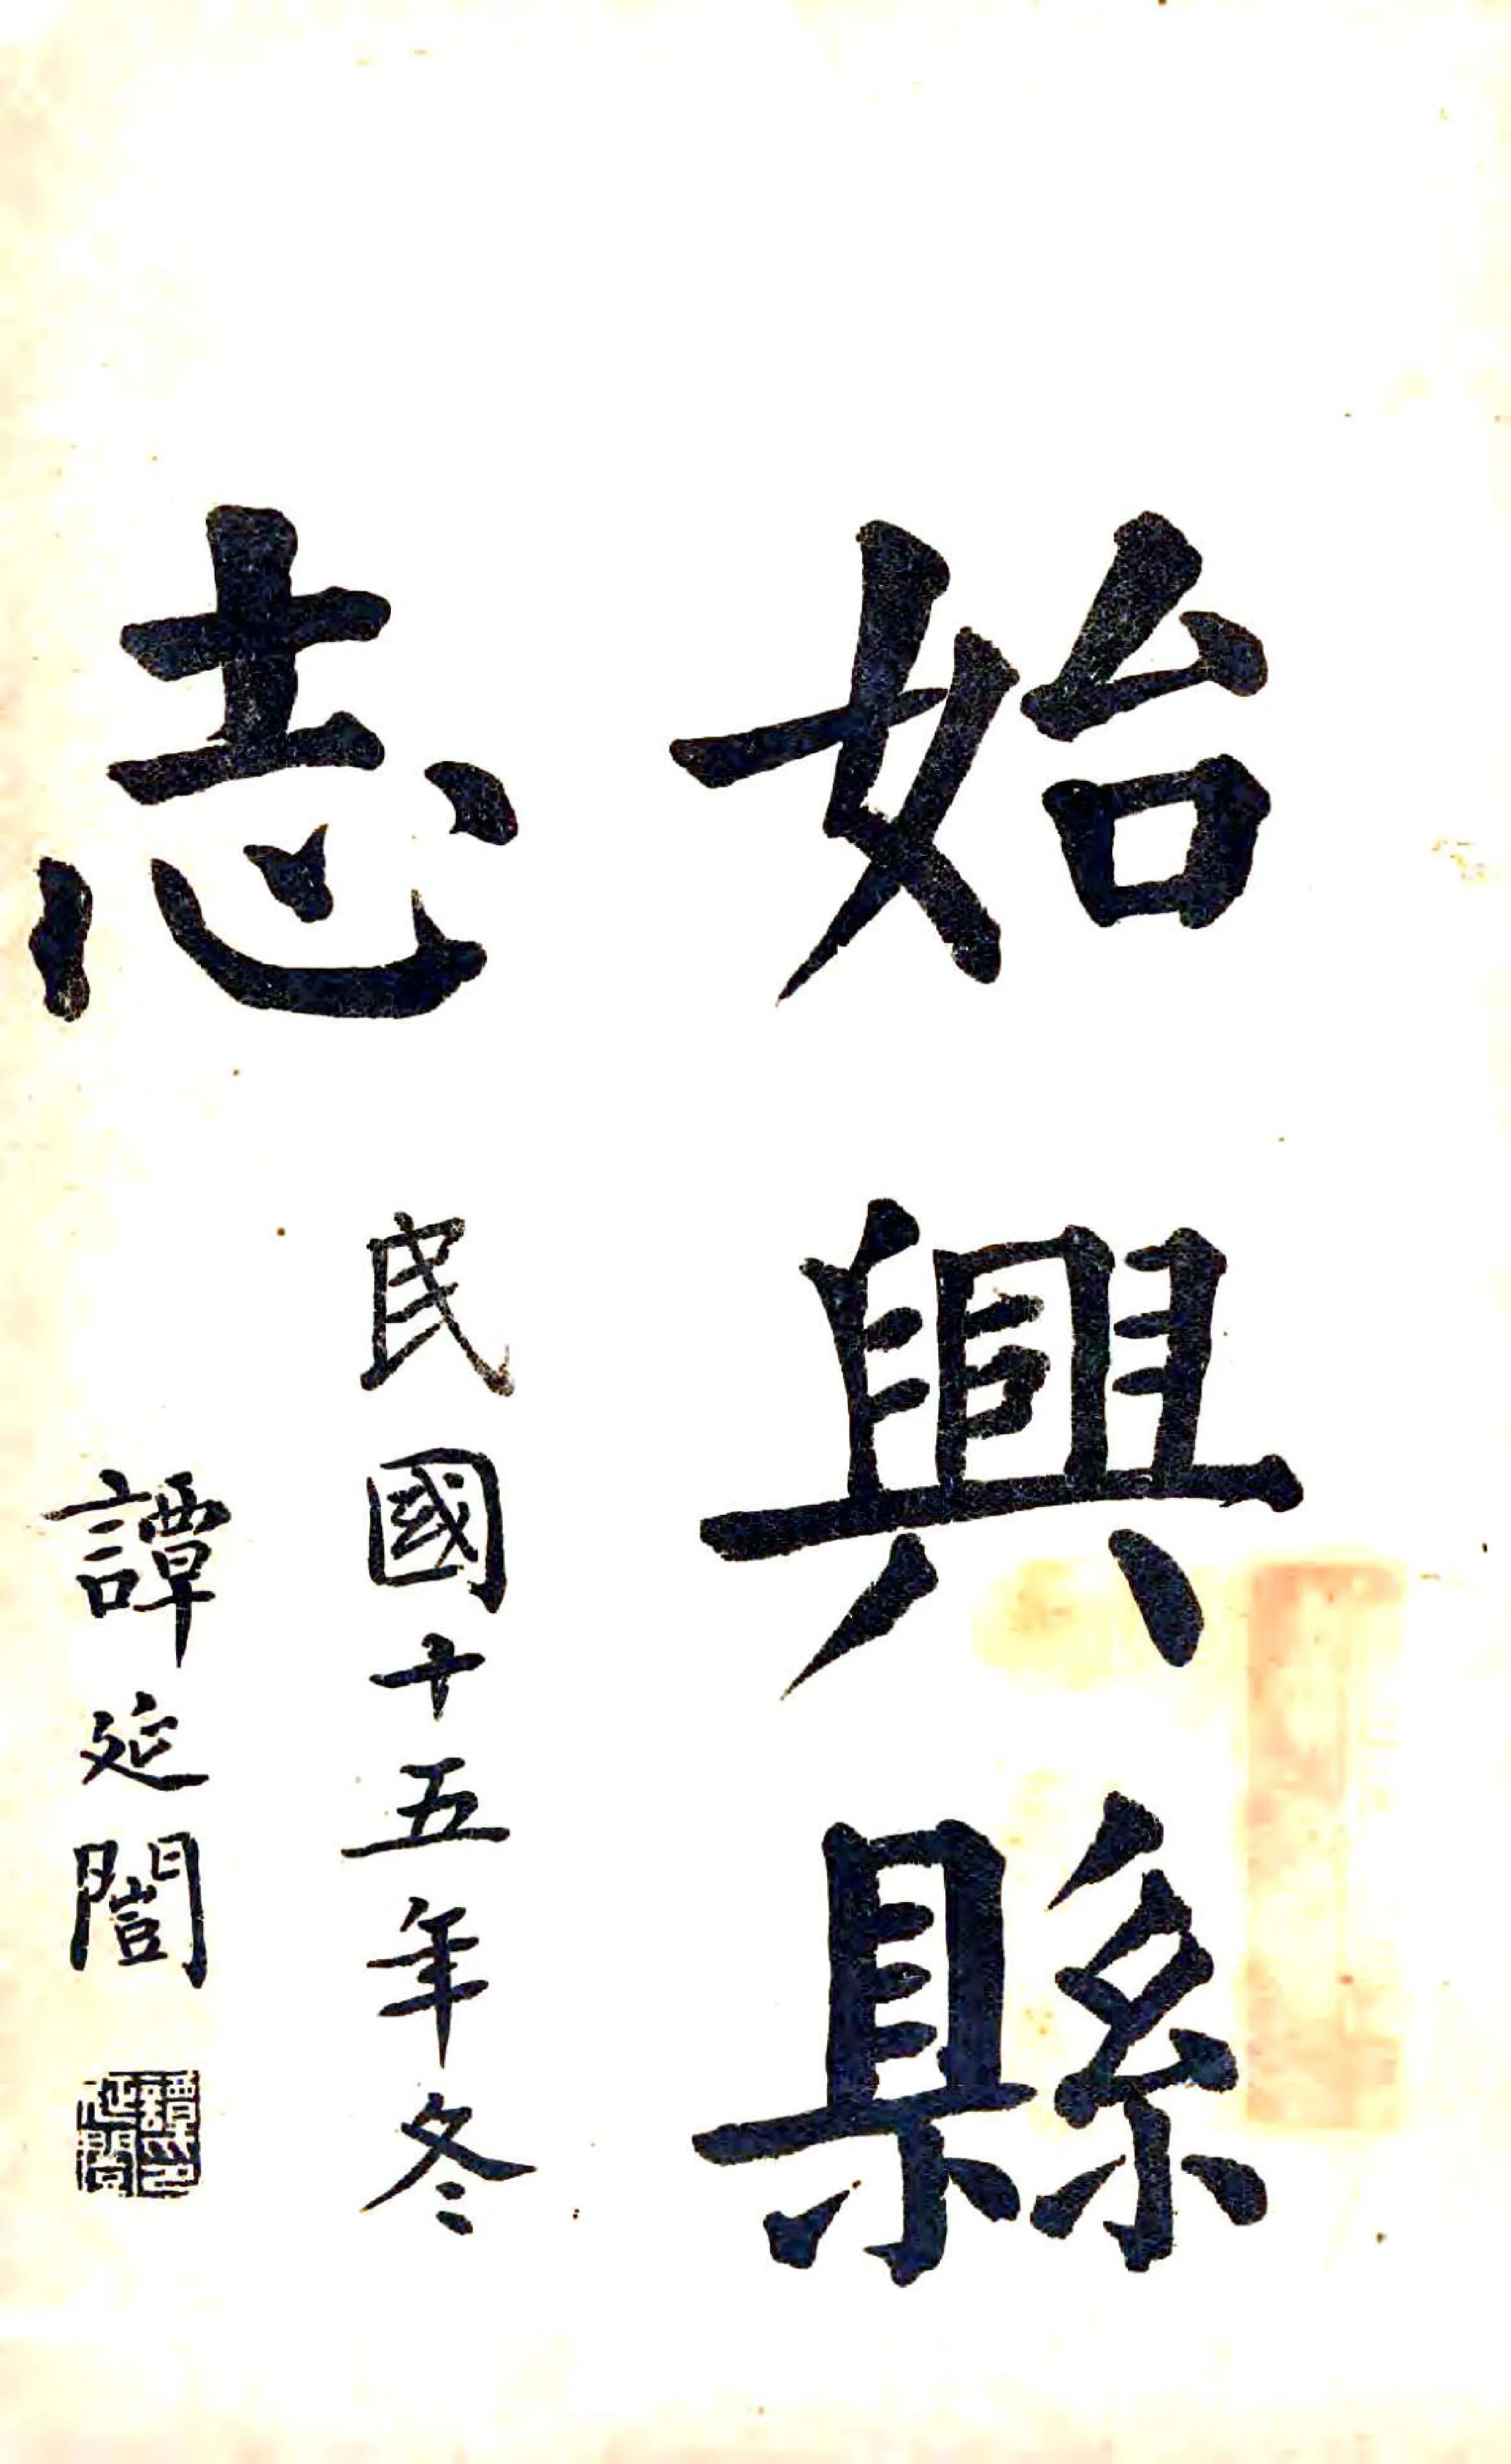 始興縣
志
民國十五年冬
譚延闓
譚延闓印